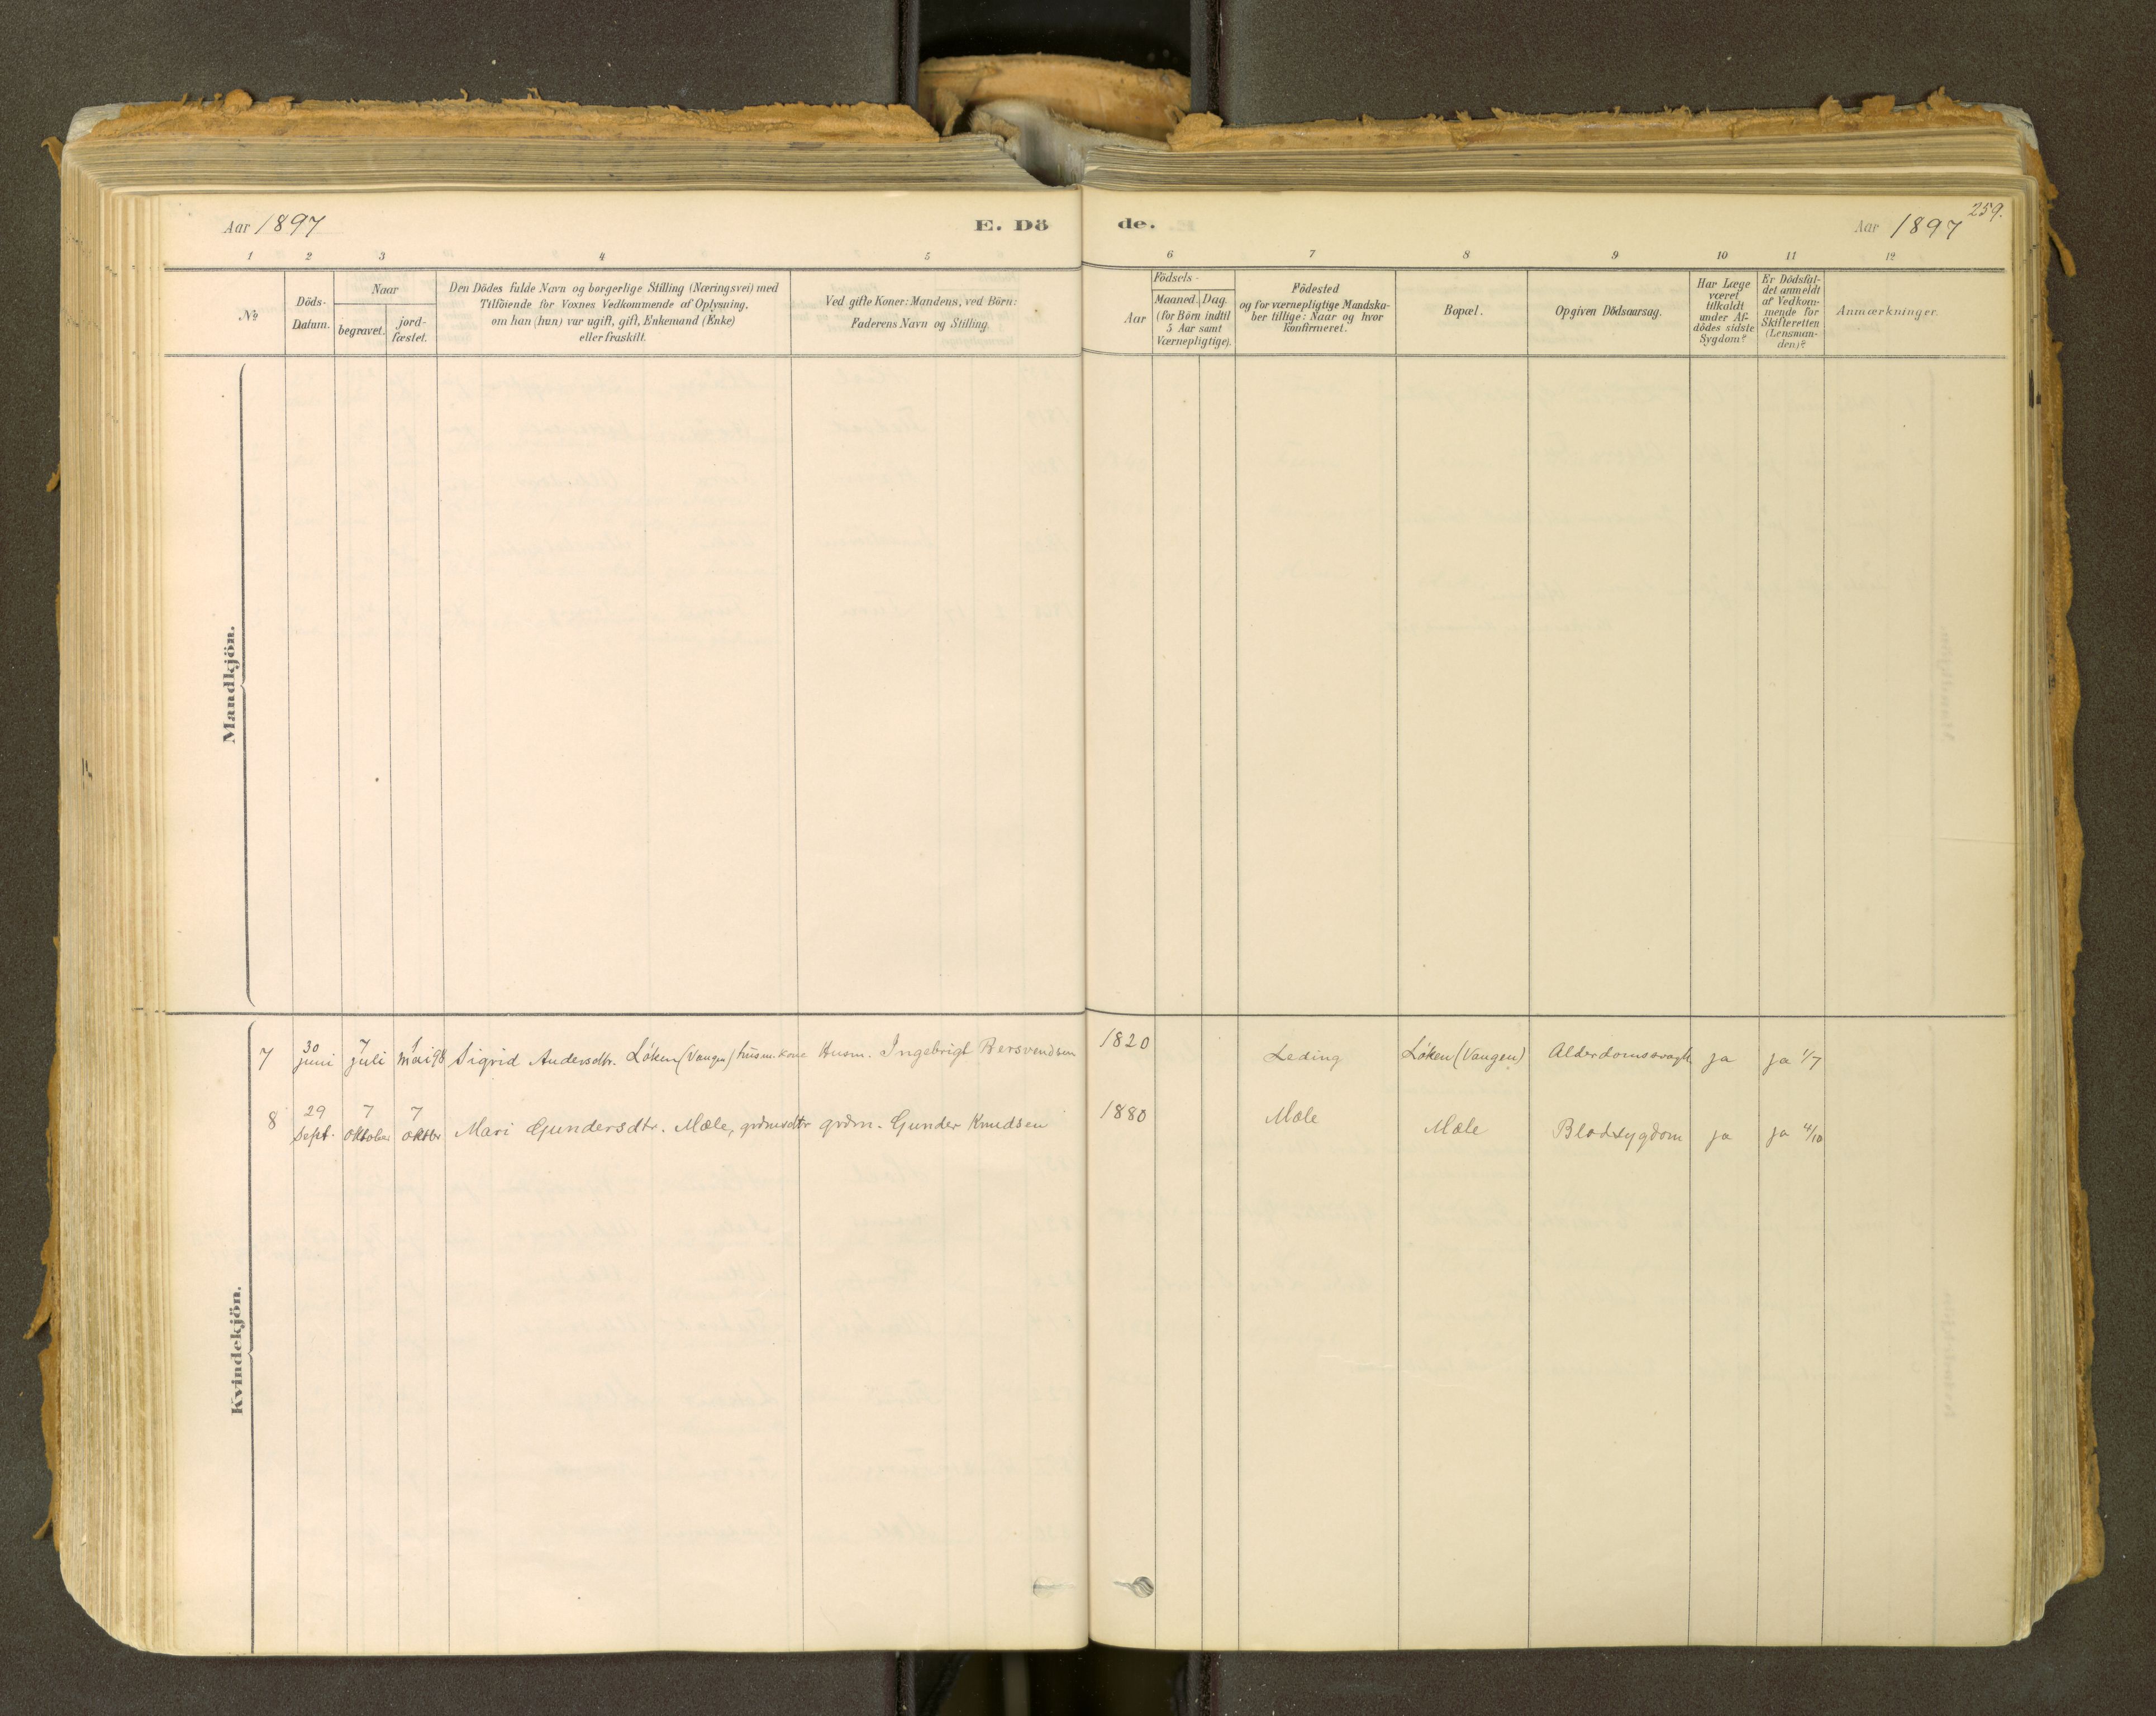 Aar 1897
E. Dö
de.
Aar 1897
259.
1 2 3 4 5 6 7 8 9 10 11 12
No
Döds-
Datum.
Naar
begravet.
jord-
fæstet.
Den Dödes fulde Navn og borgerlige Stilling (Næringsvei) med
Tilföiende for Voxnes Vedkommende af Oplysning,
om han (hun) var ugift, gift, Enkemand (Enke)
eller fraskilt.
Ved gifte Koner: Mandens, ved Börn:
Faderens Navn og Stilling.
Aar
Födsels-
Maaned. Dag.
(for Börn indtil
5 Aar samt
Værnepligtige).
Födested
og for værnepligtige Mandska-
ber tillige: Naar og hvor
Konfirmeret.
Bopæl.
Opgiven Dödsaarsag.
Har Læge
været
tilkaldt
under Af-
dödes sidste
Sygdom?
Er Dödsfal-
det anmeldt
af Vedkom-
mende for
Skifteretten
(Lensman-
den)?
Anmærkninger.
Mandkjön.
7 30 juni 7 juli 1 mai 98 Sigrid Andersdtr. Löken (Vangen) husm. kone Husm. Ingebrigt Bersvendsen 1820 Leding Löken (Vangen) Alderdomssvagh ja ja 1/7
8 29 Sept. 7 oktober 7 oktbr Mari Gundersdtr. Mæle, grdmsdtr grdm. Gunder Knudsen 1880 Mæle Mæle Blodsygdom ja ja 4/10
Kvindekjön.